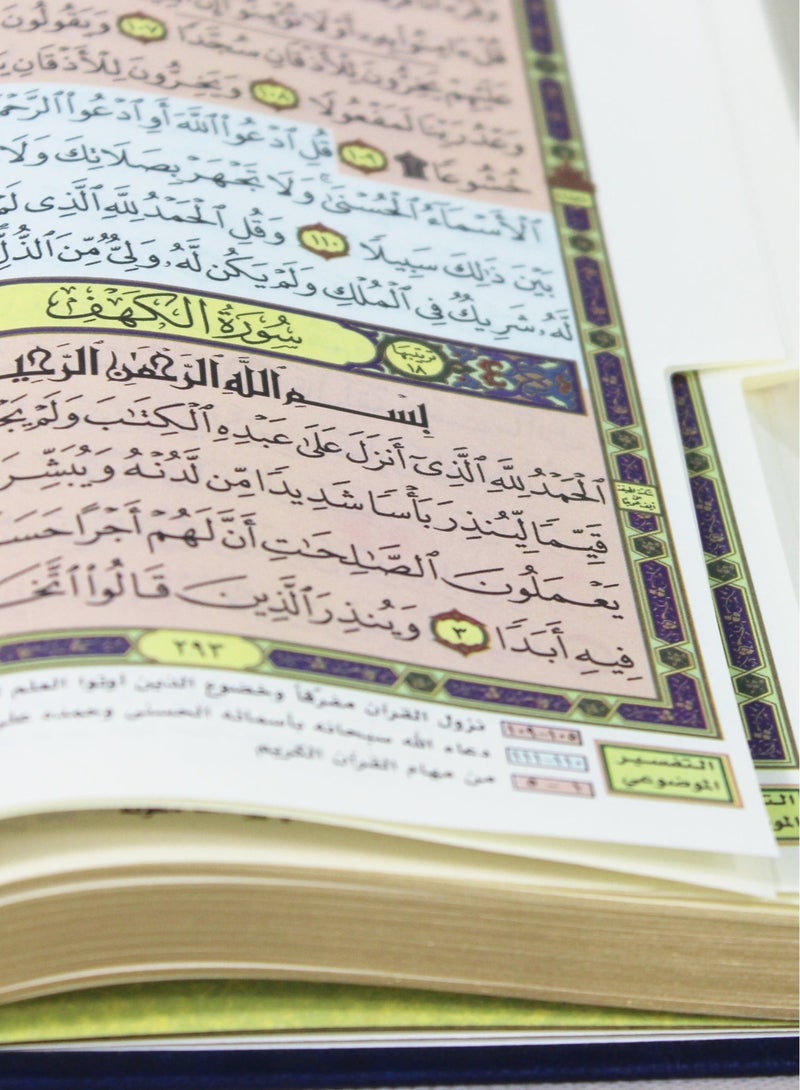 قُلْ ءَامِنُوا۟ بِهِۦٓ أَوْ لَا تُؤْمِنُوٓا۟ إِنَّ
عَلَيْهِمْ يَخِرُّونَ لِلْأَذْقَانِ سُجَّدًا ١٠٧ وَيَقُولُونَ
وَعْدُ رَبِّنَا لَمَفْعُولًا ١٠٨ وَيَخِرُّونَ لِلْأَذْقَانِ
خُشُوعًا ۩ ١٠٩ قُلِ ٱدْعُوا۟ ٱللَّهَ أَوِ ٱدْعُوا۟ ٱلرَّحْمَ
ٱلْأَسْمَآءُ ٱلْحُسْنَىٰ ۚ وَلَا تَجْهَرْ بِصَلَاتِكَ وَلَا
بَيْنَ ذَٰلِكَ سَبِيلًا ١١٠ وَقُلِ ٱلْحَمْدُ لِلَّهِ ٱلَّذِى لَمْ
لَّهُۥ شَرِيكٌ فِى ٱلْمُلْكِ وَلَمْ يَكُن لَّهُۥ وَلِىٌّ مِّنَ ٱلذُّلِّ
سُورَةُ الكَهْفِ ترتيبها ١٨
بِسْمِ اللَّهِ الرَّحْمَٰنِ الرَّحِي
ٱلْحَمْدُ لِلَّهِ ٱلَّذِىٓ أَنزَلَ عَلَىٰ عَبْدِهِ ٱلْكِتَٰبَ وَلَمْ يَجْ
قَيِّمًا لِّيُنذِرَ بَأْسًا شَدِيدًا مِّن لَّدُنْهُ وَيُبَشِّرَ
يَعْمَلُونَ ٱلصَّٰلِحَٰتِ أَنَّ لَهُمْ أَجْرًا حَسَ
فِيهِ أَبَدًا ٣ وَيُنذِرَ ٱلَّذِينَ قَالُوا۟ ٱتَّخَ
٢٩٣
التفسير الموضوعي
١٠٥-١٠٩ نزول القرآن مفرقاً وخضوع الذين أوتوا العلم
١١٠-١١١ دعاء الله سبحانه بأسمائه الحسنى وحمده على
١-٥ من مهام القرآن الكريم